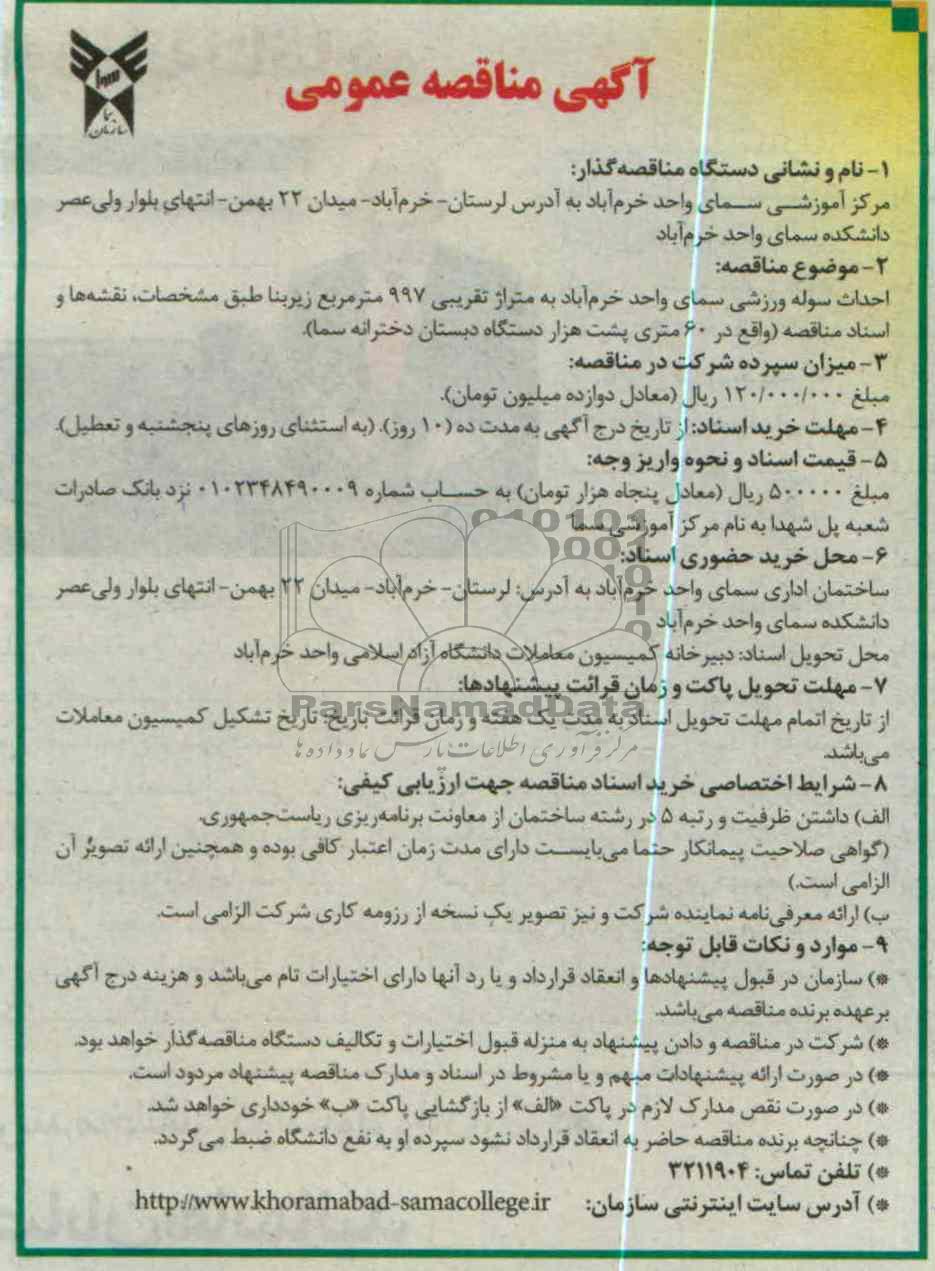 آگهی مناقصه عمومی
سما
سازمان سما
۱- نام و نشانی دستگاه مناقصه‌گذار:
مرکز آموزشی سمای واحد خرم‌آباد به آدرس لرستان- خرم‌آباد- میدان ۲۲ بهمن- انتهای بلوار ولی‌عصر
دانشکده سمای واحد خرم‌آباد
۲- موضوع مناقصه:
احداث سوله ورزشی سمای واحد خرم‌آباد به متراژ تقریبی ۹۹۷ مترمربع زیربنا طبق مشخصات، نقشه‌ها و
اسناد مناقصه (واقع در ۶۰ متری پشت هزار دستگاه دبستان دخترانه سما).
۳- میزان سپرده شرکت در مناقصه:
مبلغ ۱۲۰/۰۰۰/۰۰۰ ریال (معادل دوازده میلیون تومان).
۴- مهلت خرید اسناد: از تاریخ درج آگهی به مدت ده (۱۰ روز). (به استثنای روزهای پنجشنبه و تعطیل).
۵- قیمت اسناد و نحوه واریز وجه:
مبلغ ۵۰۰۰۰۰ ریال (معادل پنجاه هزار تومان) به حساب شماره ۰۱۰۲۳۴۸۴۹۰۰۰۹ نزد بانک صادرات
شعبه پل شهدا به نام مرکز آموزشی سما
۶- محل خرید حضوری اسناد:
ساختمان اداری سمای واحد خرم‌آباد به آدرس: لرستان- خرم‌آباد- میدان ۲۲ بهمن- انتهای بلوار ولی‌عصر
دانشکده سمای واحد خرم‌آباد
محل تحویل اسناد: دبیرخانه کمیسیون معاملات دانشگاه آزاد اسلامی واحد خرم‌آباد
۷- مهلت تحویل پاکت و زمان قرائت پیشنهادها:
ParsNamadData
از تاریخ اتمام مهلت تحویل اسناد به مدت یک هفته و زمان قرائت تاریخ: تاریخ تشکیل کمیسیون معاملات
می‌باشد.
مرکز فرآوری اطلاعات پارس نماد داده ها
۸- شرایط اختصاصی خرید اسناد مناقصه جهت ارزیابی کیفی:
الف) داشتن ظرفیت و رتبه ۵ در رشته ساختمان از معاونت برنامه‌ریزی ریاست‌جمهوری.
(گواهی صلاحیت پیمانکار حتما می‌بایست دارای مدت زمان اعتبار کافی بوده و همچنین ارائه تصویر آن
الزامی است.)
ب) ارائه معرفی‌نامه نماینده شرکت و نیز تصویر یک نسخه از رزومه کاری شرکت الزامی است.
۹- موارد و نکات قابل توجه:
*) سازمان در قبول پیشنهادها و انعقاد قرارداد و یا رد آنها دارای اختیارات تام می‌باشد و هزینه درج آگهی
برعهده برنده مناقصه می‌باشد.
*) شرکت در مناقصه و دادن پیشنهاد به منزله قبول اختیارات و تکالیف دستگاه مناقصه‌گذار خواهد بود.
*) در صورت ارائه پیشنهادات مبهم و یا مشروط در اسناد و مدارک مناقصه پیشنهاد مردود است.
*) در صورت نقص مدارک لازم در پاکت «الف» از بازگشایی پاکت «ب» خودداری خواهد شد.
*) چنانچه برنده مناقصه حاضر به انعقاد قرارداد نشود سپرده او به نفع دانشگاه ضبط می‌گردد.
*) تلفن تماس: ۳۲۱۱۹۰۴
*) آدرس سایت اینترنتی سازمان: http://www.khoramabad-samacollege.ir